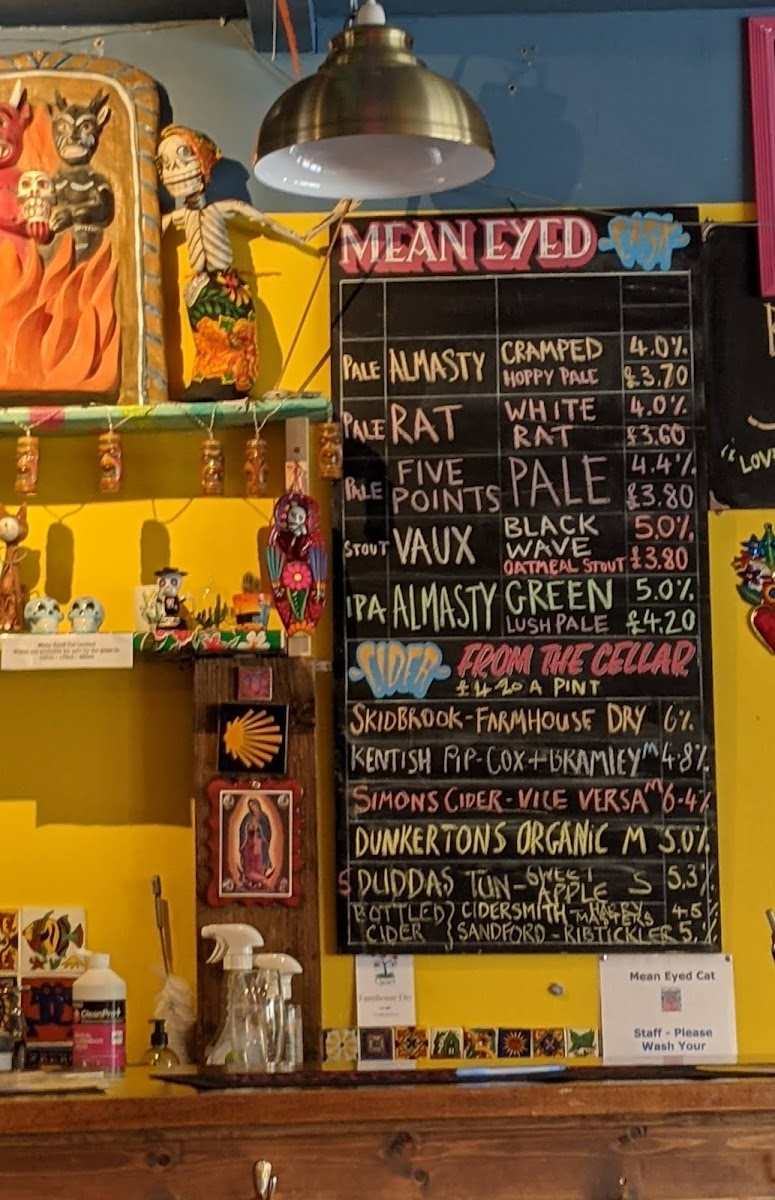 MEAN EYED CASK
PALE ALMASTY CRAMPED 4.0%
HOPPY PALE £3.70
PALE RAT WHITE RAT 4.0%
£3.60
PALE FIVE POINTS PALE 4.4%
£3.80
STOUT VAUX BLACK WAVE 5.0%
OATMEAL STOUT £3.80
IPA ALMASTY GREEN 5.0%
LUSH PALE £4.20
CIDER FROM THE CELLAR
£4.20 A PINT
SKIDBROOK-FARMHOUSE DRY 6%
KENTISH PIP-COX+BRAMLEY M 4.8%
SIMONS CIDER-VICE VERSA M 6.4%
DUNKERTONS ORGANIC M 5.0%
DUDDAS TUN-SWEET APPLE S 5.3%
BOTTLED } CIDERSMITH-HARRY MASTERS 4.5
CIDER } SANDFORD-RIBTICKLER 5.%
LOV
CleanPro+
Farmhouse Dry
Mean Eyed Cat
Staff - Please
Wash Your